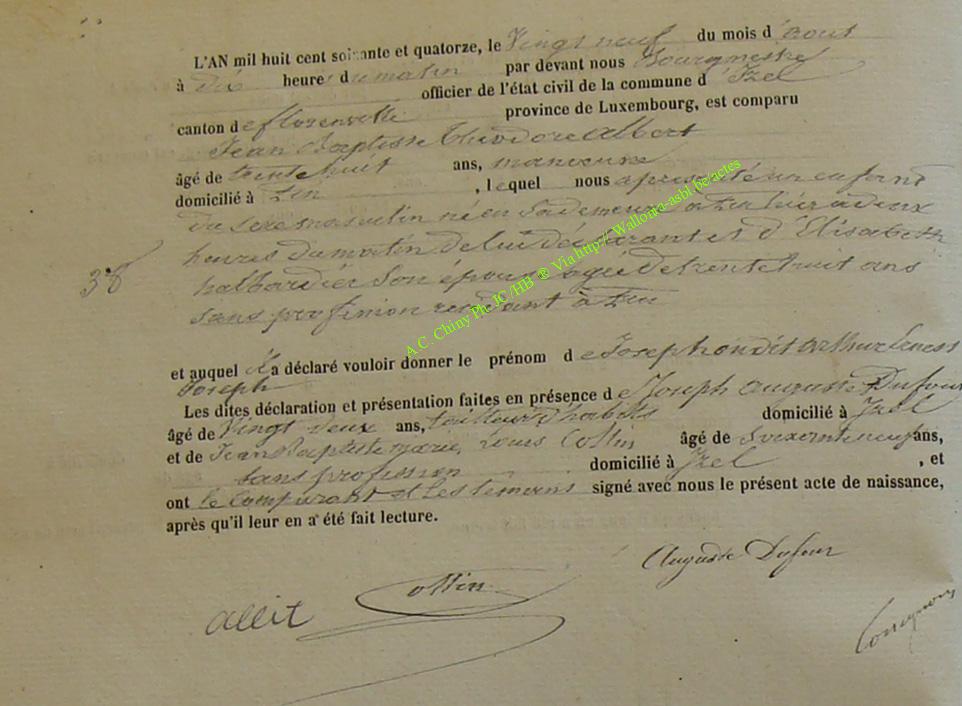 L'AN mil huit cent soixante et quatorze, le Vingt neuf du mois d'aout
à dix heures du matin par devant nous Bourgmestre
officier de l'état civil de la commune d'Izel
canton de florenville province de Luxembourg, est comparu
Jean Baptiste Théodore Albert
âgé de trente huit ans, manoeuvre
domicilié à , lequel nous a présenté un enfant
du sexe masculin né en sa demeure hier à deux
38 heures du matin de lui déclarant et d'Elisabeth
halbardier son épouse agée de trente huit ans
sans profession residant à
et auquel il a déclaré vouloir donner le prénom de Joseph ondit arthur
Joseph
Les dites déclaration et présentation faites en présence de Joseph auguste Dufour
âgé de Vingt deux ans, tailleur d'habits domicilié à Izel
et de Jean Baptiste marie Louis Collin âgé de soixante neuf ans,
sans profession domicilié à Izel , et
ont le comparant et les témoins signé avec nous le présent acte de naissance,
après qu'il leur en a été fait lecture.
A.C. Chiny Ph. JC /HB ® Via http:// Wallonia-asbl.be/actes
Auguste Dufour
Collin